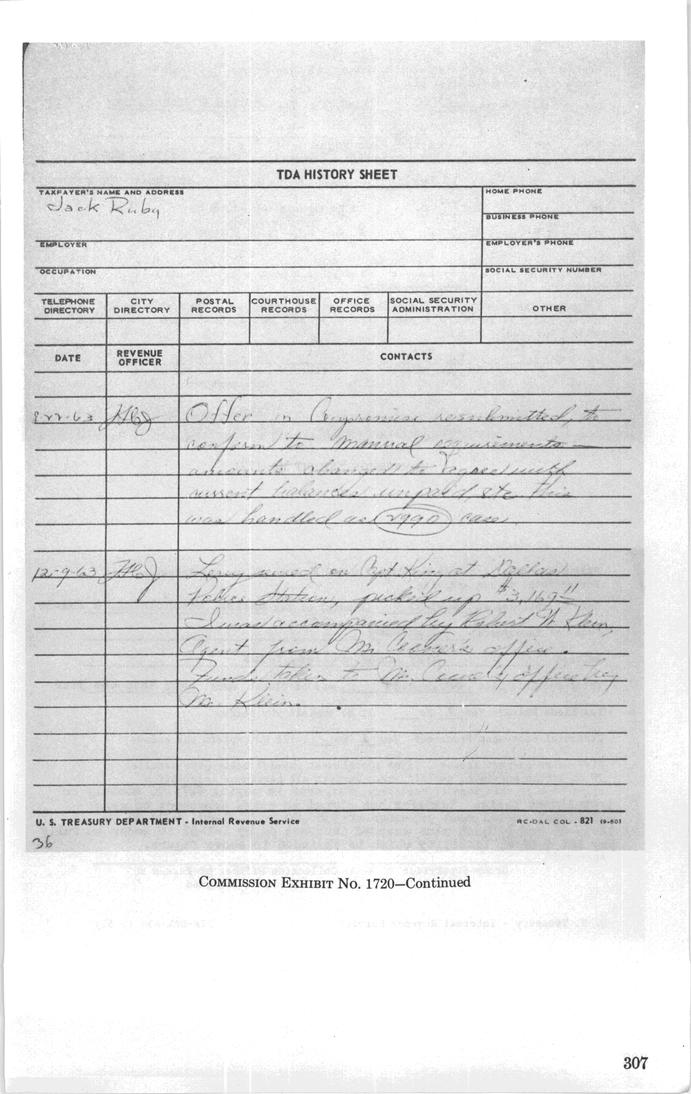 TDA HISTORY SHEET
TAXPAYER'S NAME AND ADDRESS
Jack Ruby
HOME PHONE
BUSINESS PHONE
EMPLOYER
EMPLOYER'S PHONE
OCCUPATION
SOCIAL SECURITY NUMBER
TELEPHONE DIRECTORY
CITY DIRECTORY
POSTAL RECORDS
COURTHOUSE RECORDS
OFFICE RECORDS
SOCIAL SECURITY ADMINISTRATION
OTHER
DATE
REVENUE OFFICER
CONTACTS
Offer in Compromise resubmitted, to
conform to manual requirements —
amounts changed to agree with
current balances unpaid etc. this
was handled as 2990 case.
12-9-63
Levy served on Capt King at Dallas
Police Station, picked up $3,169
I was accompanied by Robert W Klein,
Agent from Mr. office.
Funds taken to Mr. office by
Mr. Klein.
U. S. TREASURY DEPARTMENT - Internal Revenue Service
RC-DAL COL - 821 (9-60)
36
COMMISSION EXHIBIT NO. 1720—Continued
307